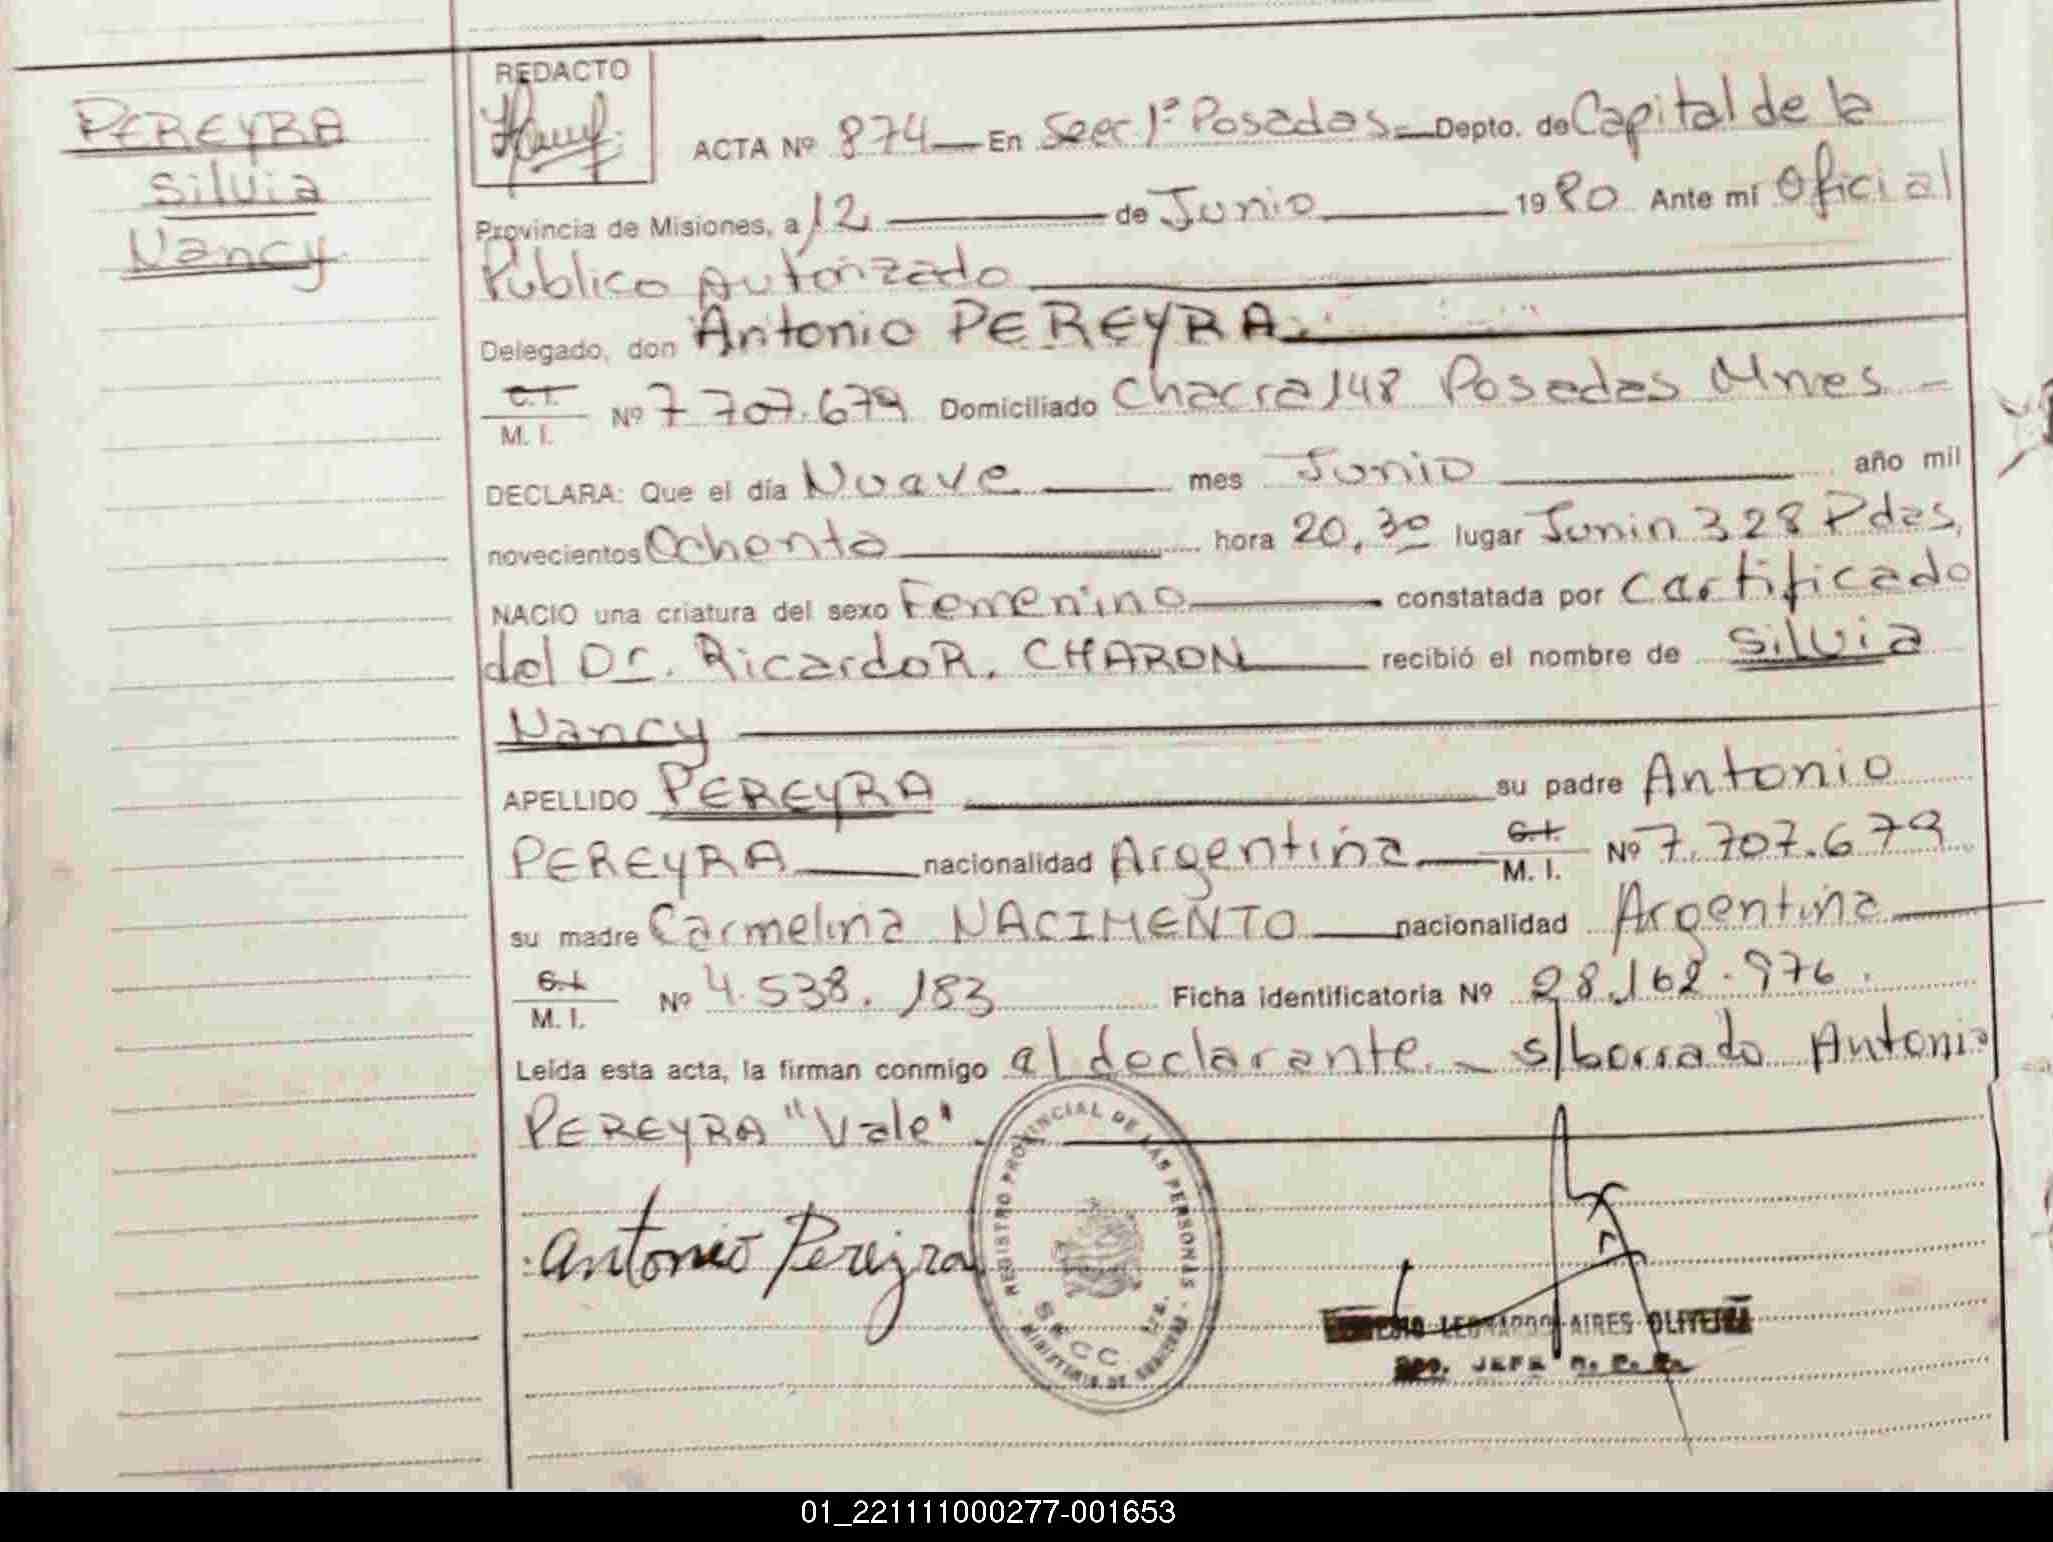 PEREYRA
Silvia
Nancy
REDACTO
ACTA Nº 874 En Secc 1ª Posadas Depto. de Capital de la
Provincia de Misiones, a 12 de Junio 1980 Ante mí Oficial
Público Autorizado
Delegado, don Antonio PEREYRA
C.I.
M. I. Nº 7.707.679 Domiciliado Chacra 148 Posadas Mnes
DECLARA: Que el día Nueve mes Junio año mil
novecientos Ochenta hora 20,30 lugar Junin 328 Pdas,
NACIO una criatura del sexo Femenino constatada por Certificado
del Dr. Ricardo R. CHARON recibió el nombre de Silvia
Nancy
APELLIDO PEREYRA su padre Antonio
PEREYRA nacionalidad Argentina C.I. M. I. Nº 7.707.679
su madre Carmelina NACIMENTO nacionalidad Argentina
C.I.
M. I. Nº 4.538.183 Ficha identificatoria Nº 28.168.976.
Leída esta acta, la firman conmigo el declarante. - s/borrado Antonio
PEREYRA "Vale".
REGISTRO PROVINCIAL DE LAS PERSONAS
SECC 1ra.
MINISTERIO DE GOBIERNO
Antonio Pereyra
LEONARDO AIRES OLIVEIRA
JEFE R. P. P.
01_221111000277-001653